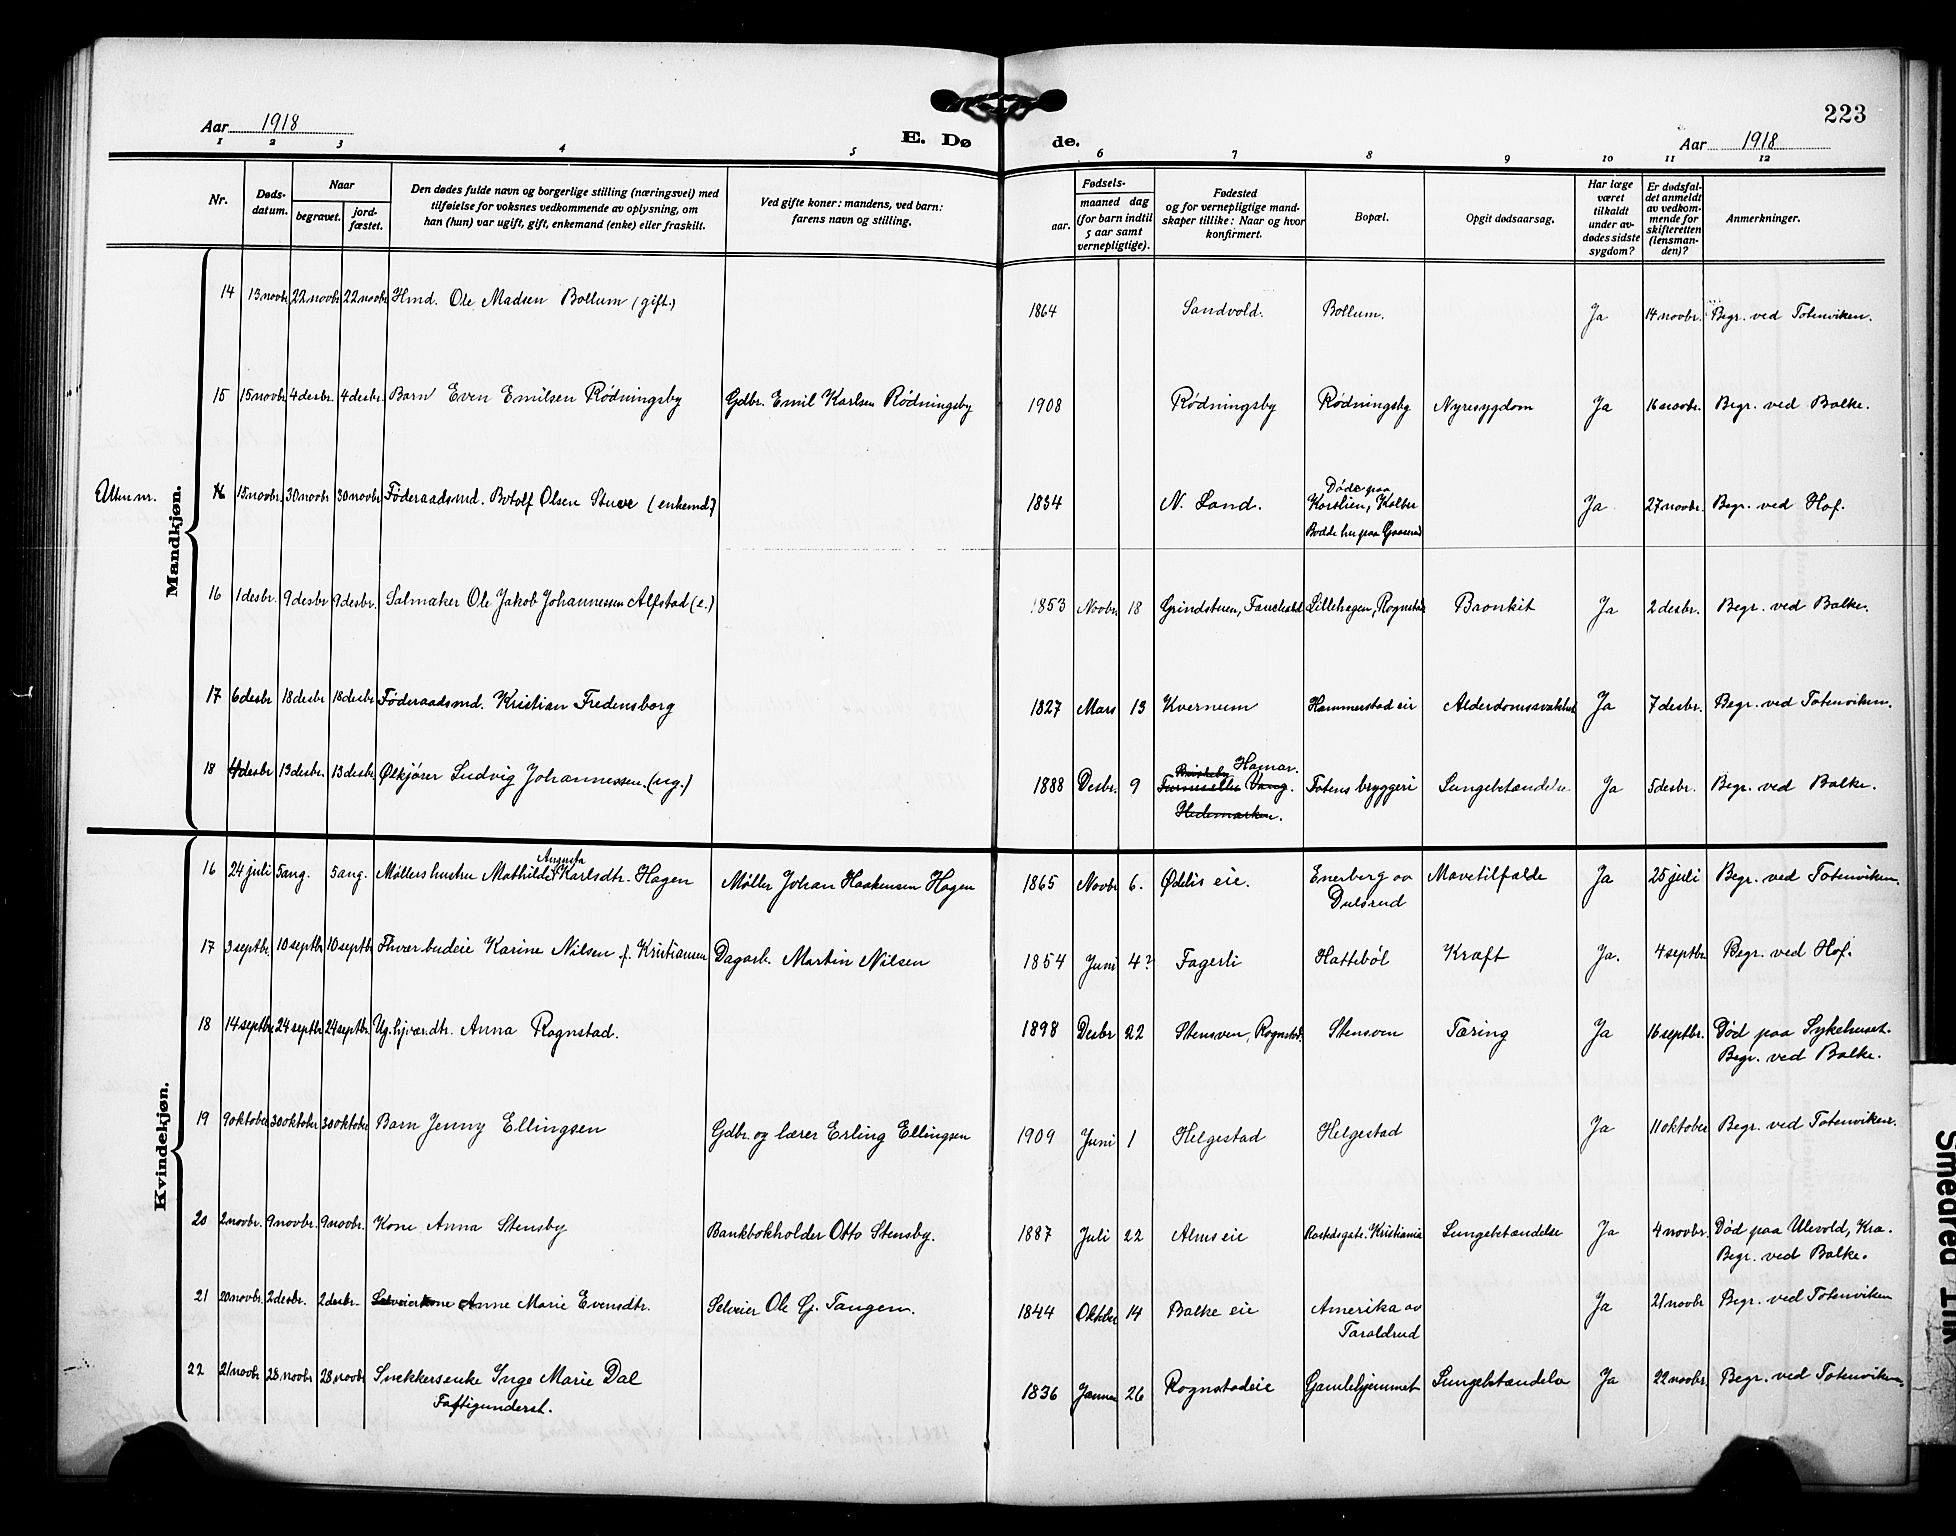 223
Aar 1918
E. Dø de.
Aar 1918
1 2 3 4 5 6 7 8 9 10 11 12
Nr.
Døds-
datum.
Naar
begravet.
jord-
fæstet.
Den dødes fulde navn og borgerlige stilling (næringsvei) med
tilføielse for voksnes vedkommende av oplysning, om
han (hun) var ugift, gift, enkemand (enke) eller fraskilt.
Ved gifte koner: mandens, ved barn:
farens navn og stilling.
Fødsels-
aar.
maaned dag
(for barn indtil
5 aar samt
vernepligtige).
Fødested
og for vernepligtige mand-
skaper tillike: Naar og hvor
konfirmert.
Bopæl.
Opgit dødsaarsag.
Har læge
været
tilkaldt
under av-
dødes sidste
sygdom?
Er dødsfal-
det anmeldt
av vedkom-
mende for
skifteretten
(lensman-
den)?
Anmerkninger.
Mandkjøn.
14 13 novbr 22 novbr 22 novbr Hmd. Ole Madsen Bollum (gift.) 1864 Sandvold. Bollum. Ja 14 novbr. Begr. ved Totenviken.
15 15 novbr 4 desbr. 4 desbr. Barn Even Emilsen Rødningsby Gdbr. Emil Karlsen Rødningsby 1908 Rødningsby Rødningsby Nyresygdom Ja 16 novbr. Begr. ved Balke.
Uten nr. 16 15 novbr. 30 novbr 30 novbr Føderaadsmd. Botolf Olsen Stuve (enkemd.) 1834 N. Land. Døde paa
Korslien, Kolbu
Bodde her paa Ja 27 novbr. Begr. ved Hof.
16 1 desbr. 9 desbr 9 desbr. Salmaker Ole Jakob Johannessen Alfstad (e.) 1853 Novbr. 18 Grindstuen, Lillehagen, Rognstad Bronkit Ja 2 desbr. Begr. ved Balke.
17 6 desbr 18 desbr 18 desbr Føderaadsmd. Kristian Fredensborg 1827 Mars 13 Kvernum Hammerstad eie Alderdomssvakhet Ja 7 desbr. Begr. ved Totenviken.
18 4 desbr 13 desbr. 13 desbr. Ølkjører Ludvig Johannessen. (ug.) 1888 Desbr. 9 Hamar.
Vang.
Hedemarken. Totens bryggeri Lungebetændelse Ja 5 desbr. Begr. ved Balke.
Kvindekjøn.
16 24 juli 5 aug. 5 aug. Møllers hustru Mathilde Augusta Karlsdtr. Hagen Møller Johan Haakensen Hagen 1865 Novbr 6. Ødelis eie. Enerberg av
Dulsrud Mavetilfælde Ja 25 juli Begr. ved Totenviken.
17 3 septbr. 10 septbr 10 septbr Karine Nilsen f. Kristiansen Dagarb. Martin Nilsen 1854 Juni 4? Fagerli Hattebøl Kræft Ja. 4 septbr Begr. ved Hof.
18 14 septbr 24 septbr 24 septbr Ug. hjvær. dtr. Anna Rognstad. 1898 Desbr 22 Stensven, Rognstad. Stensven Tæring Ja 16 septbr. Død paa Sykehuset.
Begr. ved Balke.
19 9 oktober 30 oktober 30 oktober Barn Jenny Ellingsen Gdbr. og lærer Erling Ellingsen 1909 Juni 1 Helgestad Helgestad Ja 11 oktober Begr. ved Totenviken.
20 2 novbr. 9 novbr. 9 novbr. Kone Anna Stensby Bankbokholder Otto Stensby. 1887 Juli 22 Alms eie Rostedsgate. Kristiania Lungebetændelse Ja 4 novbr. Død paa Ulevold, Kra.
Begr. ved Balke.
21 20 novbr. 2 desbr. 2 desbr. Selveierkone Anne Marie Evensdtr. Selveier Ole G. Tangen. 1844 Oktbr 14 Balke eie Amerika av
Taraldrud Ja 21 novbr Begr. ved Totenviken
22 21 novbr 28 novbr 28 novbr Snekkerenke Inge Marie Dal
Fattigunderst. 1836 Januar 26 Rognstadeie Gamlehjemmet Lungebetændelse Ja 22 novbr. Begr. ved Totenviken.
Smeared Ink